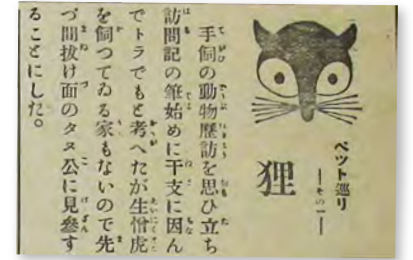 ペット巡り
―その一―
狸
手飼の動物歴訪を思ひ立ち
訪問記の筆始めに干支に因ん
でトラでもと考へたが生憎虎
を飼つてゐる家もないので先
づ間抜け面のタヌ公に見参す
ることにした。